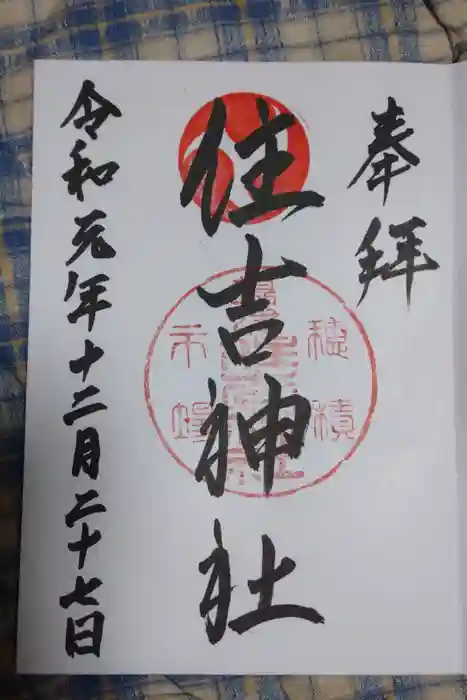 奉拝
住吉神社
令和元年十二月二十七日